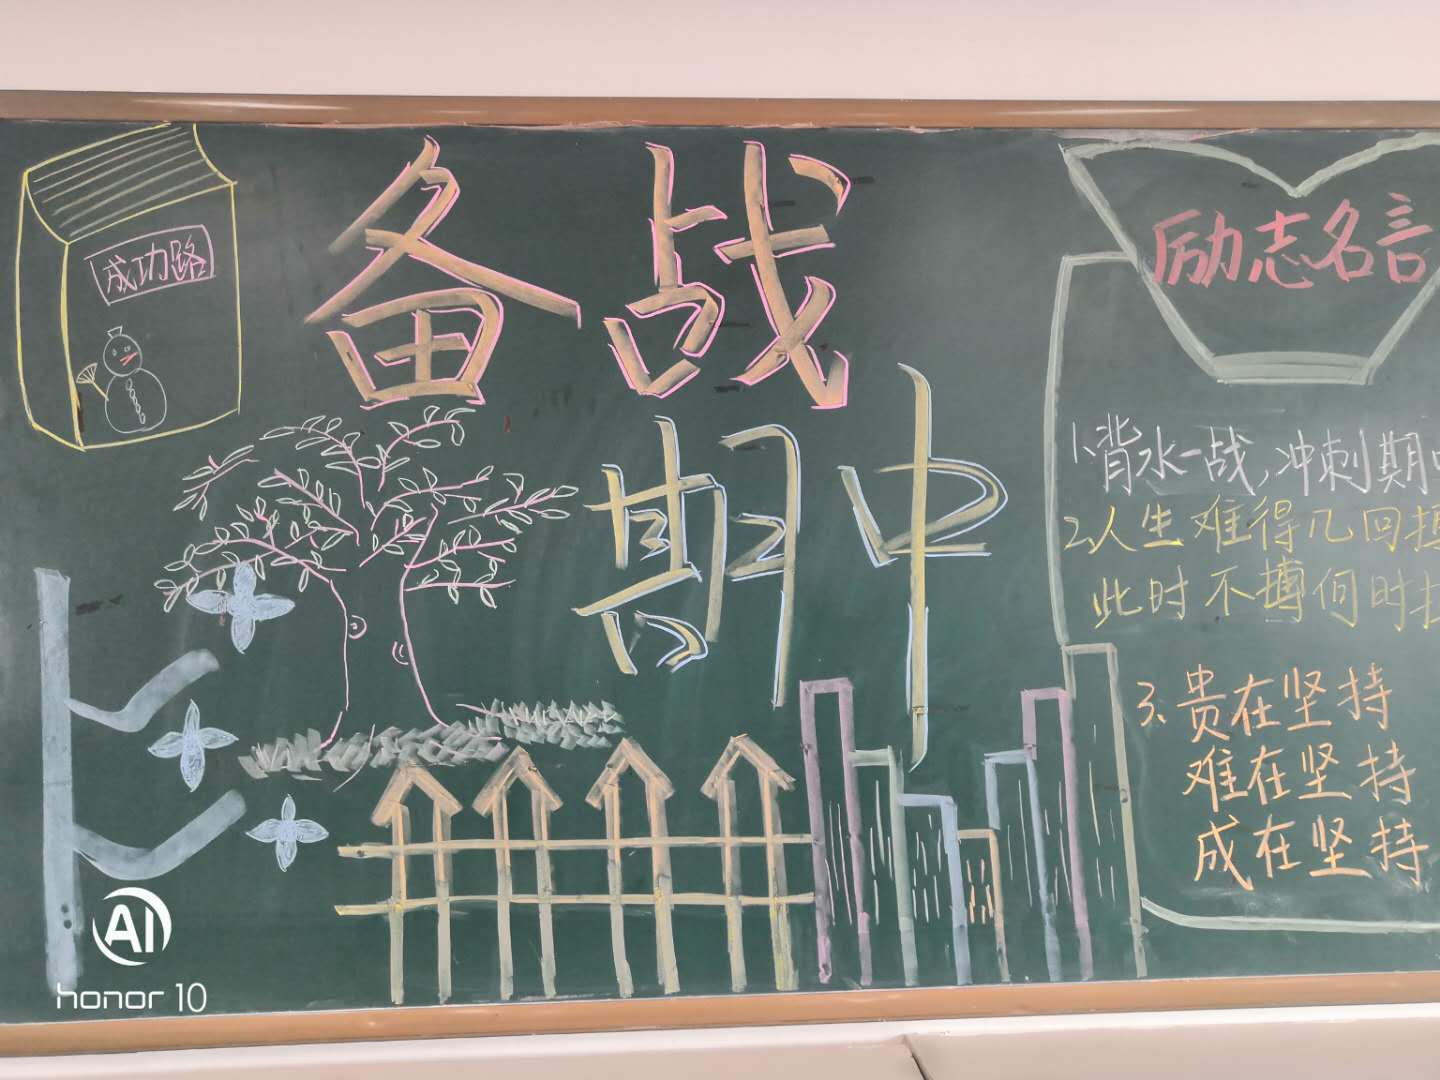 成功路
备战
期中
励志名言
1、背水一战,冲刺期
2、人生难得几回
此时不搏何时
3、贵在坚持
难在坚持
成在坚持
AI
honor 10